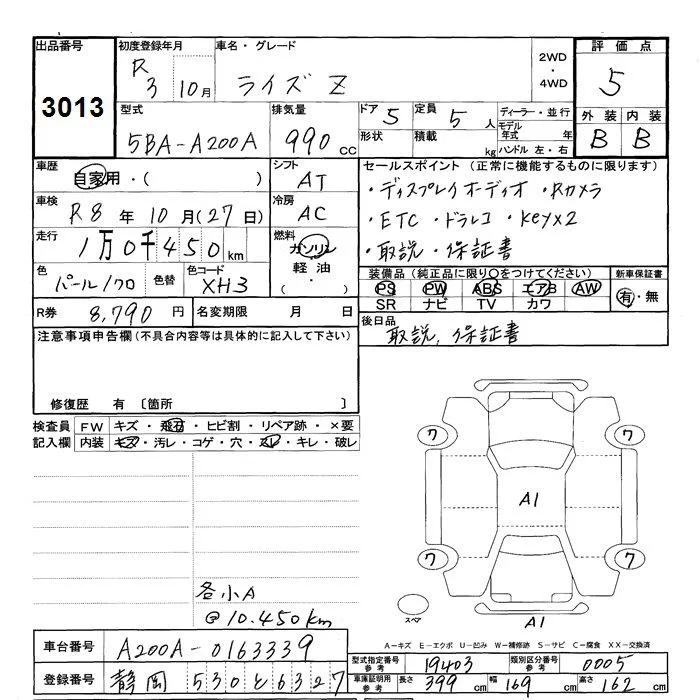 出品番号 初度登録年月 車名・グレード 2WD・4WD 評価点
3013 R3 10月 ライズ Z 5
型式 排気量 ドア 5 定員 5人 ディーラー・並行 外装 内装
5BA-A200A 990cc 形状 積載 kg モデル年式 年 ハンドル 左・右 B B
車歴 自家用・( ) シフト AT セールスポイント (正常に機能するものに限ります)
車検 R8年10月(27日) 冷房 AC ・ディスプレイオーディオ ・Rカメラ
・ETC ・ドラレコ ・Keyx2
走行 1万0千450km 燃料 ガソリン・軽油・( ) ・取説・保証書
色 パール/クロ 色替 色コード XH3 装備品 (純正品に限り○をつけてください) 新車保証書
PS PW ABS エアB AW 有・無
SR ナビ TV カワ
R券 8,790円 名変期限 月 日 後日品 取説, 保証書
注意事項申告欄(不具合内容等は具体的に記入して下さい)
修復歴 有 〔箇所 〕
検査員 FW キズ・飛石・ヒビ割・リペア跡・×要
記入欄 内装 キズ・汚レ・コゲ・穴・スレ・キレ・破レ
ワ ワ
A1
ワ ワ
各小A
@10.450km
スペア A1
A-キズ E-エクボ U-凹み W-補修跡 S-サビ C-腐食 XX-交換済
車台番号 A200A-0163339 型式指定番号 参考 19403 類別区分番号 参考 0005
登録番号 静岡 530 と 6327 車庫証明用 参考 長さ 399cm 幅 169cm 高さ 162cm